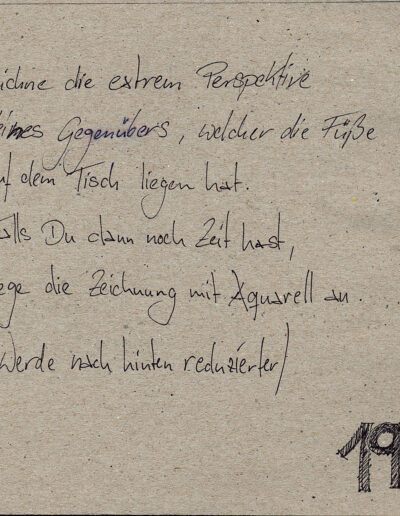 ichne die extrem Perspektive
eines Gegenübers, welcher die Füße
uf dem Tisch liegen hat.
alls Du dann noch Zeit hast,
ege die Zeichnung mit Aquarell an.
Werde nach hinten reduzierter)
19